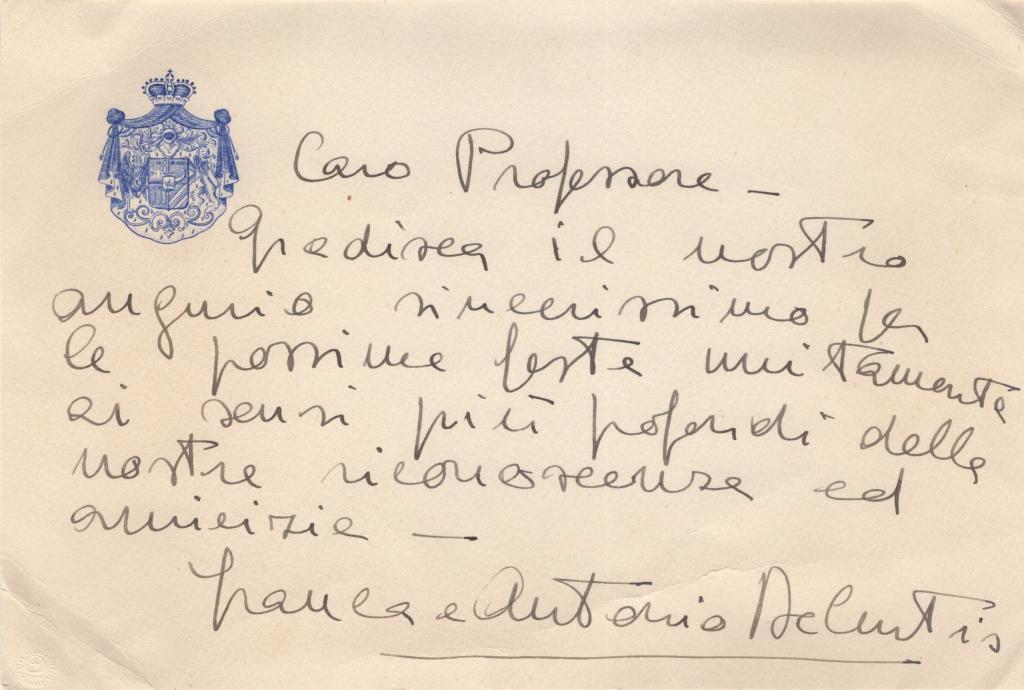 Caro Professore –
Gradisca il nostro
augurio sincerissimo per
le prossime feste unitamente
ai sensi più profondi della
nostra riconoscenza ed
amicizia –
Franca e Antonio De Curtis